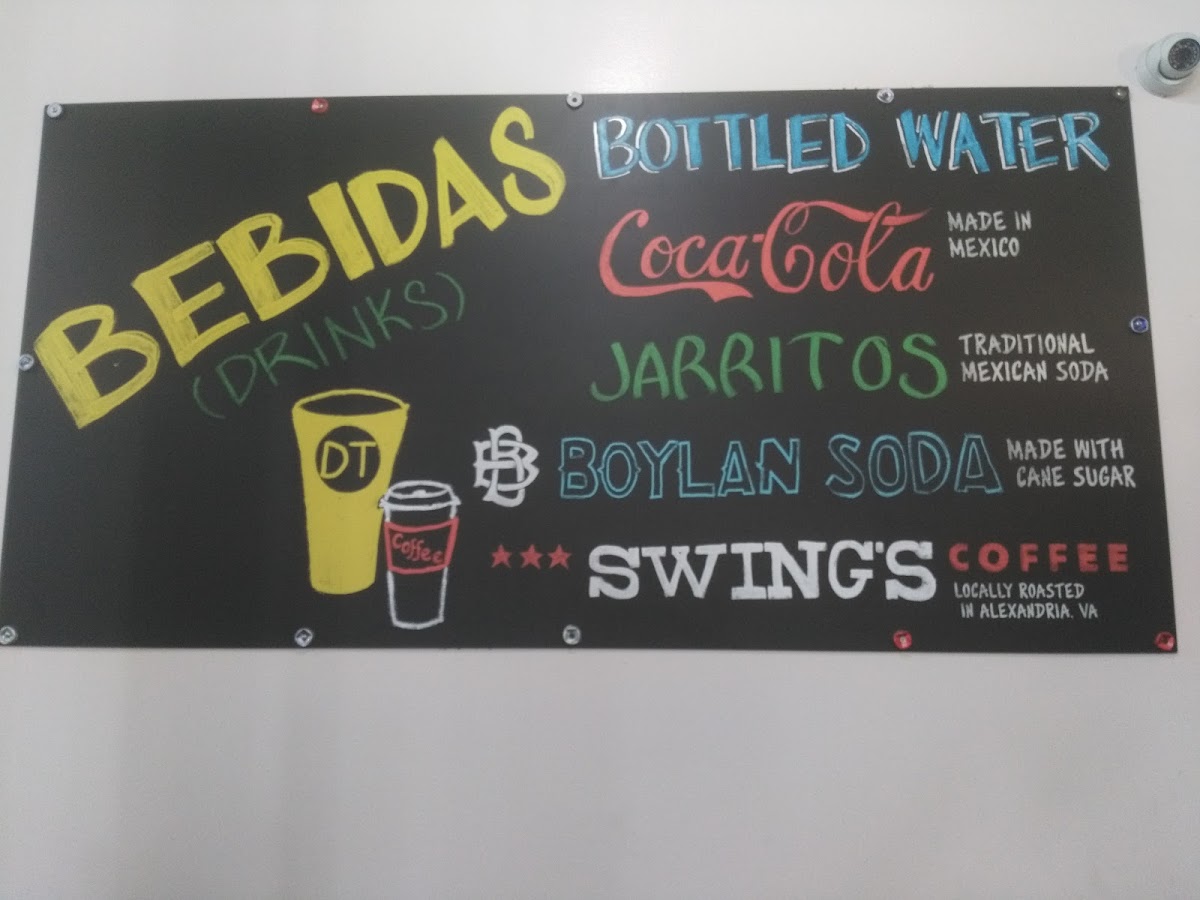 BEBIDAS
(DRINKS)
DT
Coffee
BOTTLED WATER
Coca-Cola
MADE IN
MEXICO
JARRITOS
TRADITIONAL
MEXICAN SODA
BOYLAN SODA
MADE WITH
CANE SUGAR
SWING'S COFFEE
LOCALLY ROASTED
IN ALEXANDRIA, VA